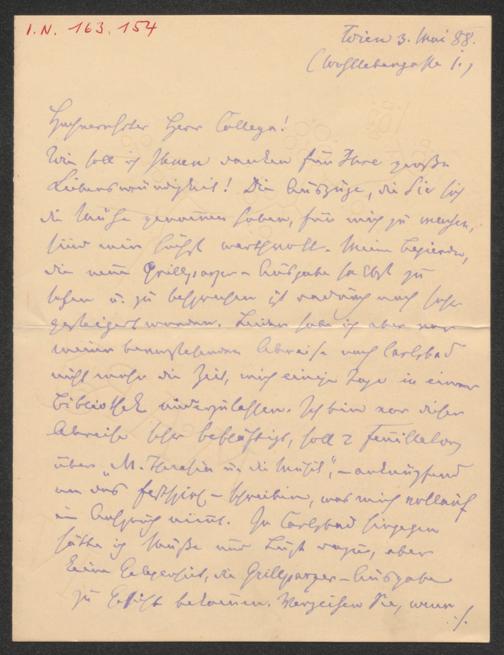 I.N. 163.154
Wien 3. Mai 88.
(Wohllebengasse 1.)
Hochverehrter Herr College!
Wie soll ich Ihnen danken für Ihre große
Liebenswürdigkeit! Die Auszüge, die Sie sich
die Mühe genommen haben, für mich zu machen,
sind mir höchst werthvoll. Meine Begierde,
die neue Grillparzer-Ausgabe selbst zu
sehen u. zu besprechen ist dadurch noch sehr
gesteigert worden. Leider habe ich aber vor
meiner bevorstehenden Abreise nach Carlsbad
nicht mehr die Zeit, mich einige Tage in einer
Bibliothek niederzulassen. Ich bin vor dieser
Abreise sehr beschäftigt, soll 2 Feuilletons
über „M. Theresia u. die Musik", – anknüpfend
an das Festspiel – schreiben, was mich vollauf
in Anspruch nimmt. In Carlsbad hingegen
hätte ich Muße und Lust dazu, aber
keine Gelegenheit, die Grillparzer-Ausgabe
zu Gesicht bekommen. Verzeihen Sie, wenn
./.